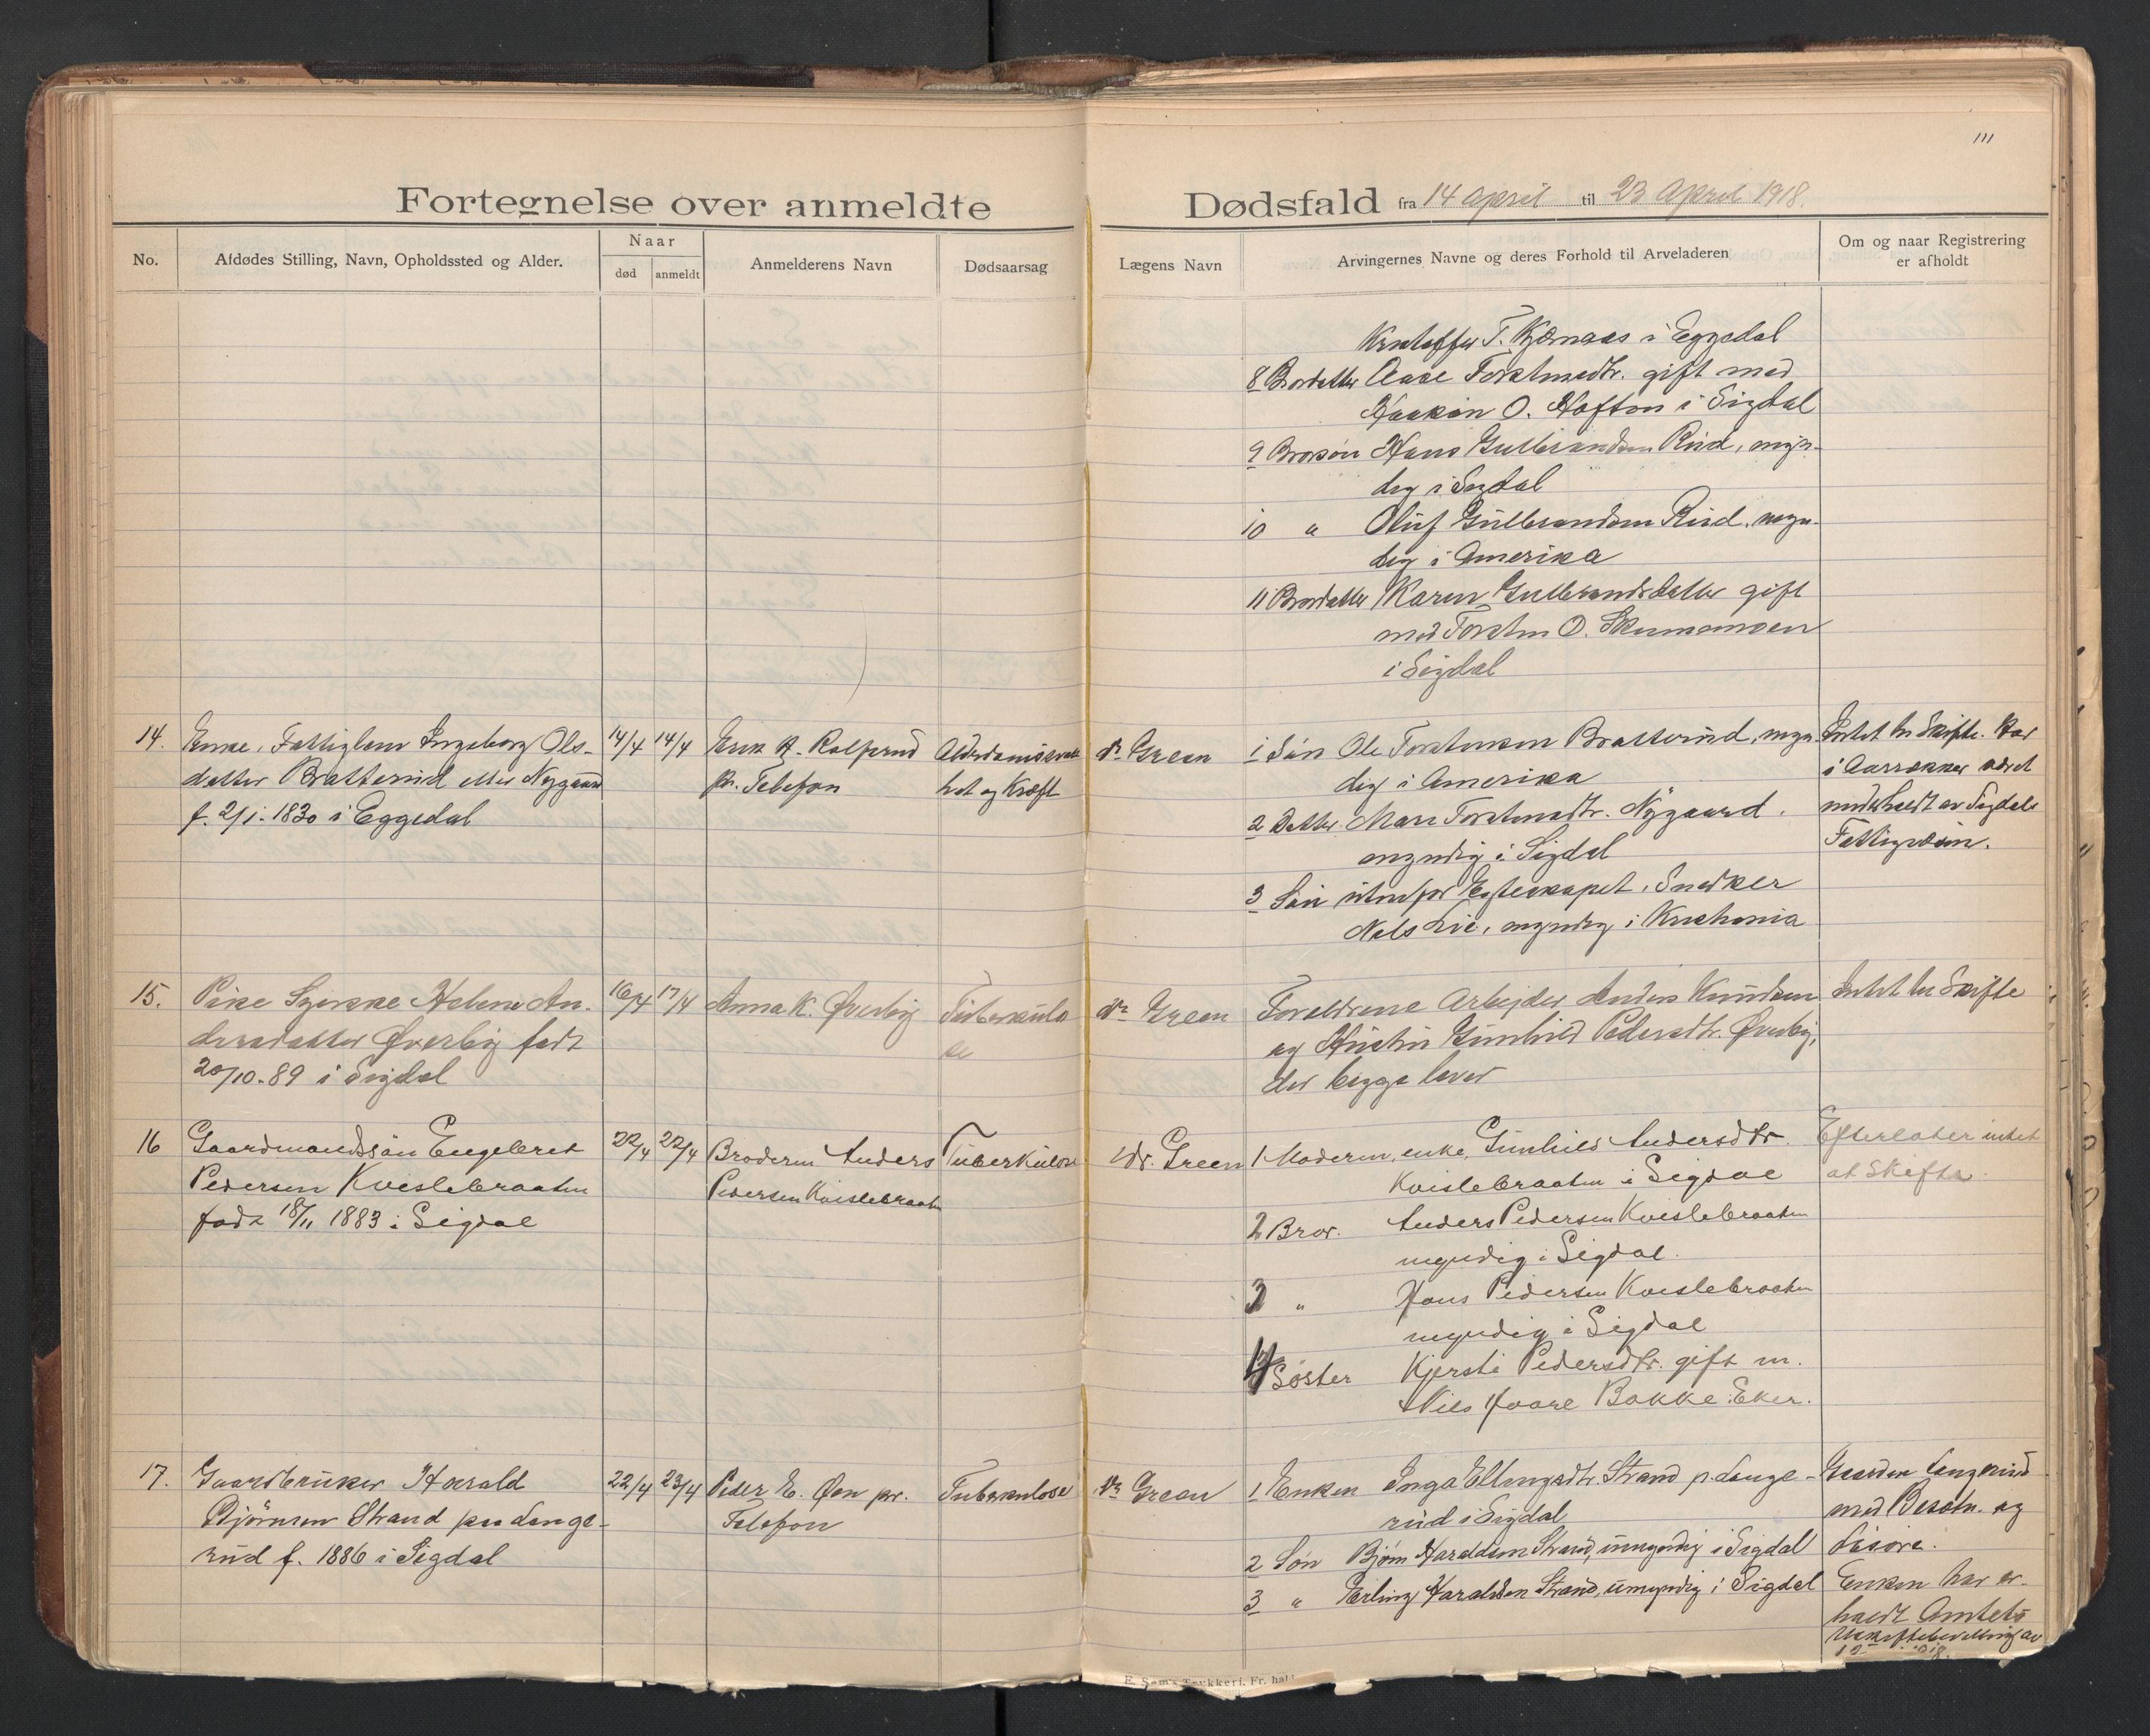 111
Fortegnelse over anmeldte Dødsfald fra 14 April til 23 April 1918.
No.
Afdødes Stilling, Navn, Opholdssted og Alder.
Naar
død
anmeldt
Anmelderens Navn
Dødsaarsag
Lægens Navn
Arvingernes Navne og deres Forhold til Arveladeren
Om og naar Registrering
er afholdt
T. i Eggedal
8 Brordatter Aase Torstensdtr. gift med
Haakon O. Hafton i Sigdal
9 Brorsøn Hans Gulbrandsen Rud, myn-
dig i Sigdal
10 " Oluf Gulbrandsen Rud, myn-
dig i Amerika
11 Brordatter Karen Gulbrandsdatter gift
med Torsten O.
i Sigdal
14.
Enke, Fattiglem Ingeborg Ols-
datter Bratterud eller Nygaard
f. 2/1. 1830 i Eggedal
14/4
14/4
Erik A. Kolsrud
pr. Telefon
het og Kræft
Dr Green
1 Søn Ole Torstensen Bratterud, myn
dig i Amerika
2 Datter Mari Torstensdtr. Nygaard,
myndig i Sigdal
3 Søn utenfor Egteskapet, Snedker
Nels Lie, myndig i Kristiania
Intet til Skifte. Har
i Aarrækker været
underholdt av Sigdals
Fattigvæsen.
15.
Pike Helene An-
dersdatter Øverby født
20/10-89 i Sigdal
16/4
17/4
Anna K. Øverby
Tuberkulo
se
Dr Green
Foreldrene Arbeider Anders Knudsen
og Hustru Gunhild Pedersdtr. Øverby,
der begge lever
Intet til Skifte
16
Gaardmandssøn Engebret
Pedersen Kvislebraaten
født 18/11 1883 i Sigdal
22/4
22/4
Broderen Anders
Pedersen Kvislebraaten
Tuberkulose
Dr. Green
1 Moderen, enke, Gunhild Andersdtr.
Kvislebraaten i Sigdal
2 Bror. Anders Pedersen Kvislebraaten
myndig i Sigdal.
3 " Hans Pedersen Kvislebraaten
myndig i Sigdal
4 Søster Kjersti Pedersdtr. gift m.
Nils Hoare Bakke i Eker.
Efterlater intet
at Skifte.
17.
Gaardbruker Harald
Bjørnsen Strand paa Lange-
rud f. 1886 i Sigdal
22/4
23/4
Peder E. Øen pr.
Telefon
Tuberkulose
Dr Green
1 Enken Inga Ellingsdtr. Strand p. Lange-
rud i Sigdal
2 Søn Bjørn Haraldsen Strand, umyndig i Sigdal
3 " Erling Haraldsen Strand, umyndig i Sigdal
Gaarden Langerud
med Besætn. og
Løsøre.
Enken har er-
holdt Amtets
av
E. Sem's Trykkeri, Fr. hald